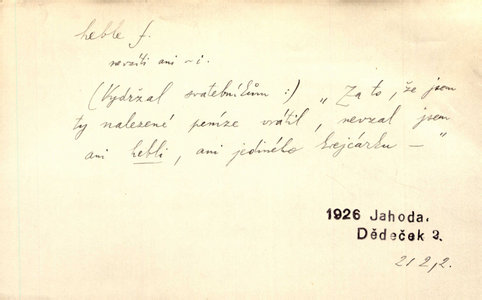 heble f.
nevzíti ani ~i.
(Vydržal svatebníkům:) „Za to, že jsem
ty nalezené peníze vrátil, nevzal jsem
ani hebli, ani jediného krejcárku — "
1926 Jahoda.
Dědeček 3.
21 2,2.